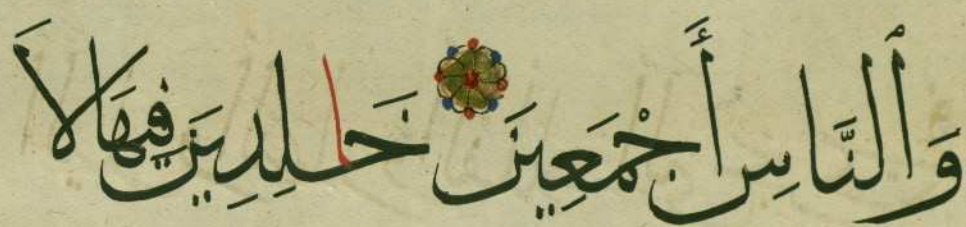 وَٱلنَّاسِ أَجْمَعِينَ خَالِدِينَ فِيهَا لَا